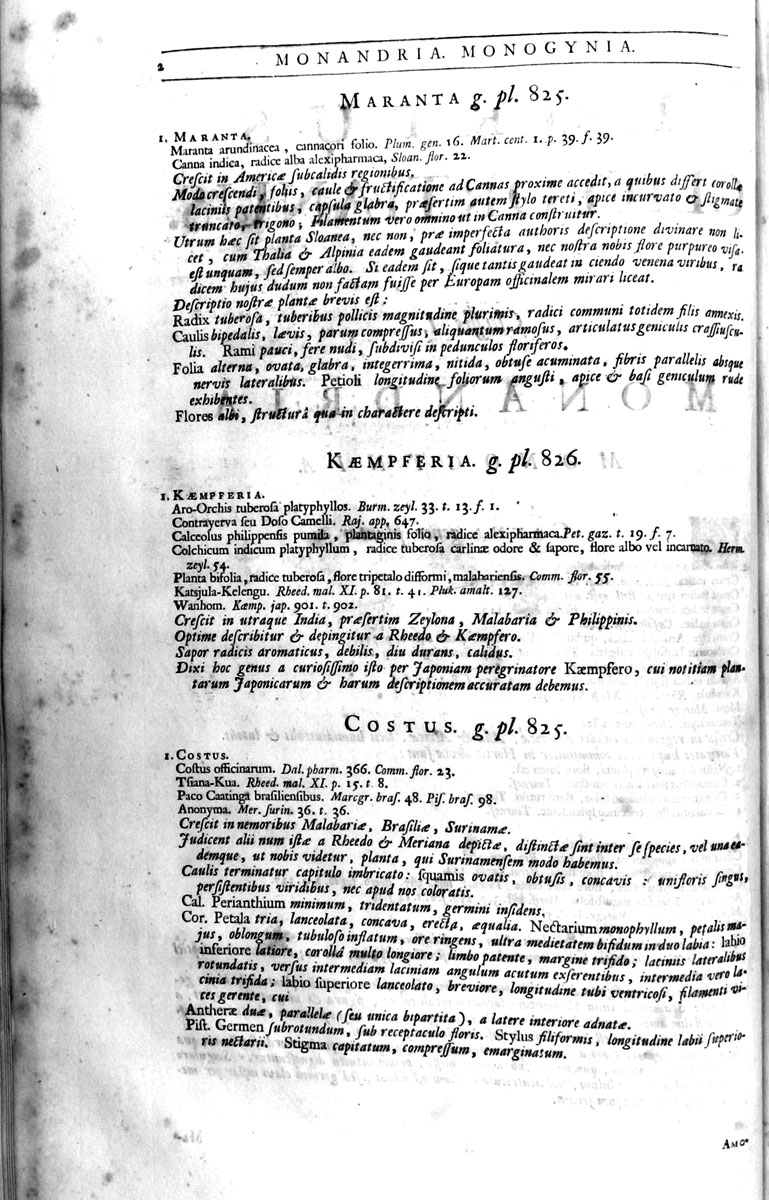 2
MONANDRIA. MONOGYNIA.
MARANTA g. pl. 825.
1. MARANTA.
Maranta arundinacea, cannacori folio. Plum. gen. 16. Mart. cent. 1. p. 39. f. 39.
Canna indica, radice alba alexipharmaca, Sloan. flor. 22.
Crescit in Americæ subcalidis regionibus.
Modo crescendi, foliis, caule & fructificatione ad Cannas proxime accedit, a quibus differt corollæ
laciniis patentibus, capsula glabra, præsertim autem stylo tereti, apice incurvato & stigmate
truncato, trigono; Filamentum vero omnino ut in Canna construitur.
Utrum hæc sit planta Sloanea, nec non, præ imperfecta authoris descriptione divinare non li-
cet, cum Thalia & Alpinia eadem gaudeant foliatura, nec nostra nobis flore purpureo visa
est unquam, sed semper albo. Si eadem sit, sique tantis gaudeat in ciendo venena viribus, ra
dicem hujus dudum non factam fuisse per Europam officinalem mirari liceat.
Descriptio nostræ plantæ brevis est:
Radix tuberosa, tuberibus pollicis magnitudine plurimis, radici communi totidem filis annexis.
Caulis bipedalis, lævis, parum compressus, aliquantum ramosus, articulatus geniculis crassiuscu-
lis. Rami pauci, fere nudi, subdivisi in pedunculos floriferos.
Folia alterna, ovata, glabra, integerrima, nitida, obtuse acuminata, fibris parallelis absque
nervis lateralibus. Petioli longitudine foliorum angusti, apice & basi geniculum rude
exhibentes.
Flores albi, structurâ qua in charactere descripti.
KÆMPFERIA. g. pl. 826.
1. KÆMPFERIA.
Aro-Orchis tuberosa platyphyllos. Burm. zeyl. 33. t. 13. f. 1.
Contrayerva seu Doso Camelli. Raj. app. 647.
Calceolus philippensis pumila, plantaginis folio, radice alexipharmaca. Pet. gaz. t. 19. f. 7.
Colchicum indicum platyphyllum, radice tuberosa carlinæ odore & sapore, flore albo vel incarnato. Herm.
zeyl. 54.
Planta bifolia, radice tuberosa, flore tripetalo difformi, malabariensis. Comm. flor. 55.
Katsjula-Kelengu. Rheed. mal. XI. p. 81. t. 41. Pluk. amalt. 127.
Wanhom. Kæmp. jap. 901. t. 902.
Crescit in utraque India, præsertim Zeylona, Malabaria & Philippinis.
Optime describitur & depingitur a Rheedo & Kæmpfero.
Sapor radicis aromaticus, debilis, diu durans, calidus.
Dixi hoc genus a curiosissimo isto per Japoniam peregrinatore Kæmpfero, cui notitiam plan-
tarum Japonicarum & harum descriptionem accuratam debemus.
COSTUS. g. pl. 825.
1. COSTUS.
Costus officinarum. Dal. pharm. 366. Comm. flor. 23.
Tsiana-Kua. Rheed. mal. XI. p. 15. t. 8.
Paco Caatinga brasiliensibus. Marcgr. bras. 48. Pis. bras. 98.
Anonyma. Mer. surin. 36. t. 36.
Crescit in nemoribus Malabariæ, Brasiliæ, Surinamæ.
Judicent alii num istæ a Rheedo & Meriana depictæ, distinctæ sint inter se species, vel una ea-
demque, ut nobis videtur, planta, qui Surinamensem modo habemus.
Caulis terminatur capitulo imbricato: squamis ovatis, obtusis, concavis: unifloris singus,
persistentibus viridibus, nec apud nos coloratis.
Cal. Perianthium minimum, tridentatum, germini insidens.
Cor. Petala tria, lanceolata, concava, erecta, æqualia. Nectarium monophyllum, petalis ma-
jus, oblongum, tubuloso inflatum, ore ringens, ultra medietatem bifidum in duo labia: labio
inferiore latiore, corollâ multo longiore; limbo patente, margine trifido; laciniis lateralibus
rotundatis, versus intermediam laciniam angulum acutum exserentibus, intermedia vero la-
cinia trifida; labio superiore lanceolato, breviore, longitudine tubi ventricosi, filamenti vi-
ces gerente, cui
Antheræ duæ, parallelæ (seu unica bipartita), a latere interiore adnatæ.
Pist. Germen subrotundum, sub receptaculo floris. Stylus filiformis, longitudine labii superio-
ris nectarii. Stigma capitatum, compressum, emarginatum.
AMO-